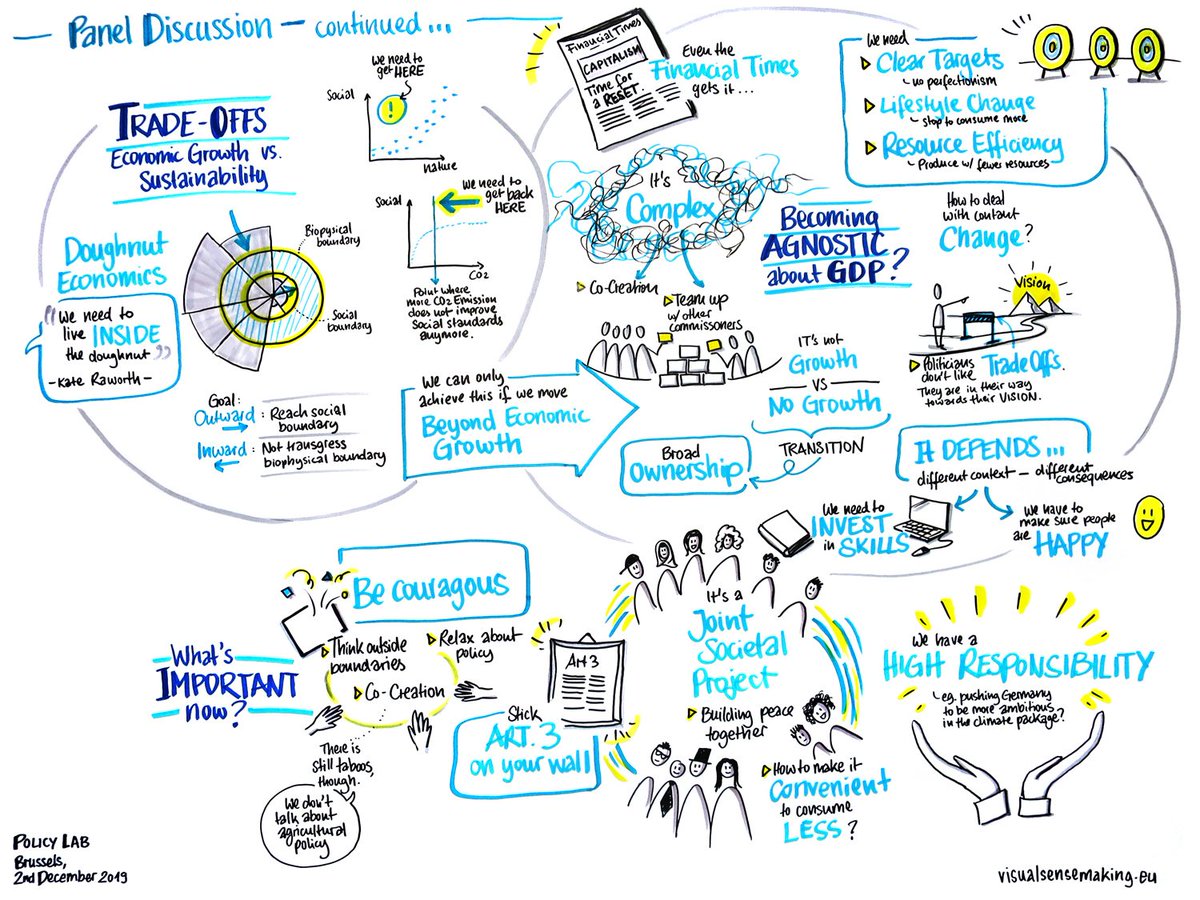 Panel Discussion – continued...
TRADE-OFFS
Economic Growth vs.
Sustainability
We need to
get HERE
Social
!
Nature
Social
We need to
get back
HERE
CO2
Point where
more CO2 Emission
does not improve
Social standards
anymore.
Doughnut
Economics
"We need to
live INSIDE
the doughnut"
- Kate Raworth -
Biopysical
boundary
Social
boundary
Goal:
Outward: Reach social
boundary
Inward: Not transgress
biophysical boundary
We can only
achieve this if we move
Beyond Economic
Growth
Financial Times
CAPITALISM
Time for
a RESET
Even the
Financial Times
gets it...
We need
Clear Targets
no perfectionism
Lifestyle Change
stop to consume more
Resource Efficiency
Produce w/ fewer resources
It's
Complex
Co-Creation
Team up
w/ other
commissoners
Becoming
AGNOSTIC
about GDP?
IT's not
Growth
VS
No Growth
TRANSITION
Broad
OWNERSHIP
How to deal
with contant
Change?
Vision
Politicians
don't like Trade Offs.
They are in their way
towards their VISION.
It DEPENDS...
different context – different
consequences
We need to
INVEST
in SKILLS
We have to
make sure people
are HAPPY
What's
IMPORTANT
now?
Be couragous
Think outside
boundaries
Relax about
policy
Co-Creation
There is
still taboos,
though.
We don't
talk about
agricultural
policy
Art 3
Stick
ART. 3
on your wall
It's a
Joint
Societal
Project
Building peace
together
How to make it
Convenient
to consume
LESS?
We have a
HIGH RESPONSIBILITY
e.g. pushing Germany
to be more ambitious
in the climate package?
POLICY LAB
Brussels,
2nd December 2019
visualsensemaking.eu